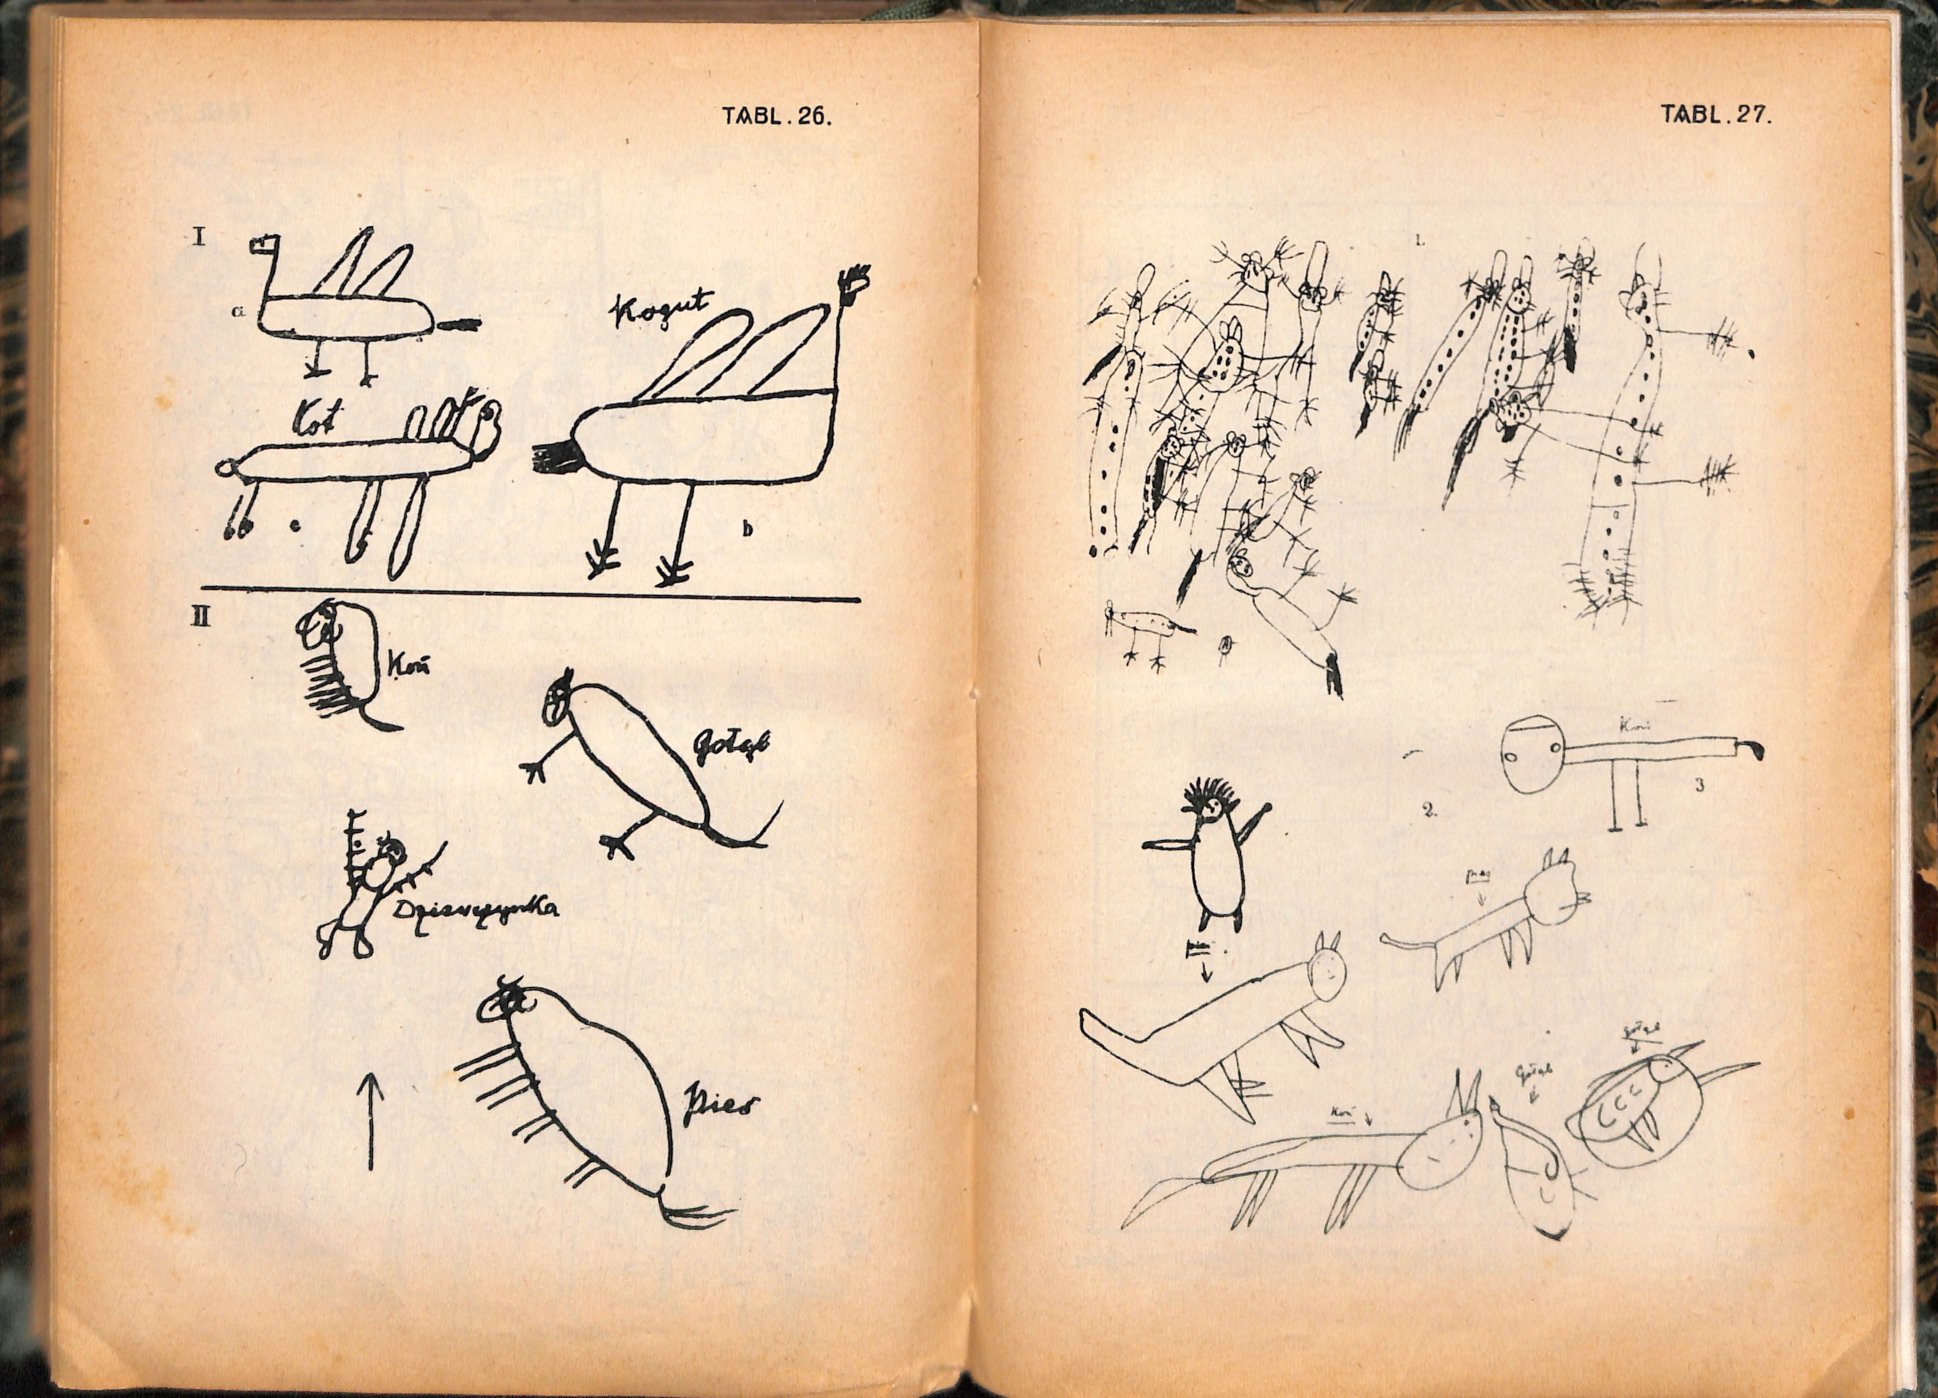 TABL. 26.
I
a
Kogut
Kot
c
b
II
Koń
Gołąb
Dziewczynka
Pies
TABL. 27.
1.
Koń
3
2.
pies
Gołąb
Gołąb
Koń